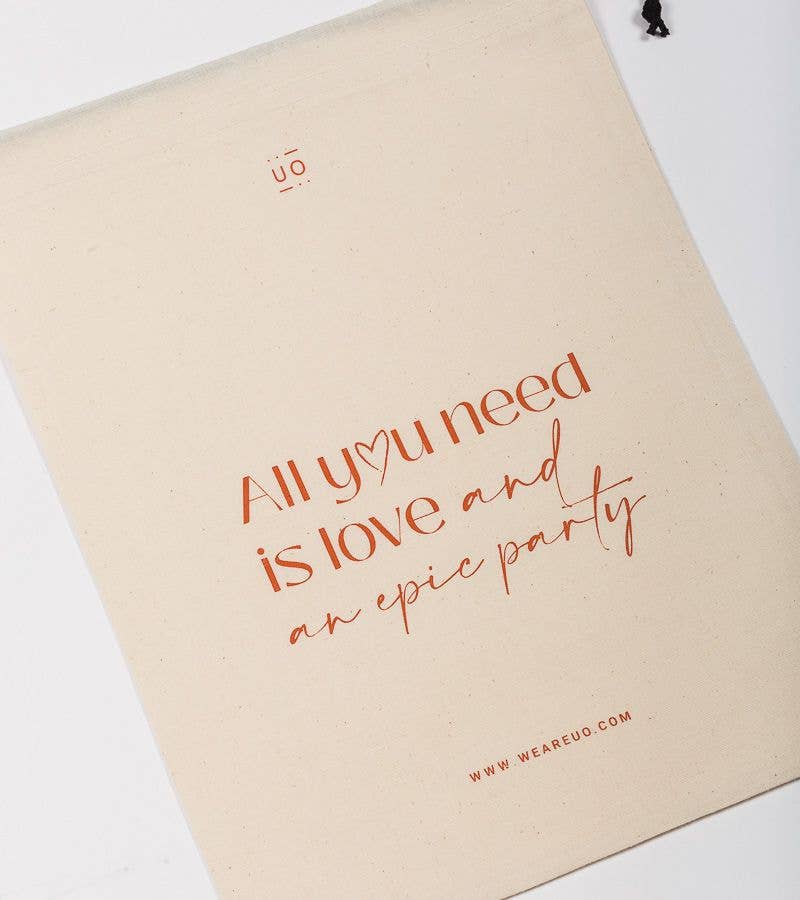 UO
All you need
is love and
an epic party
WWW.WEAREUO.COM